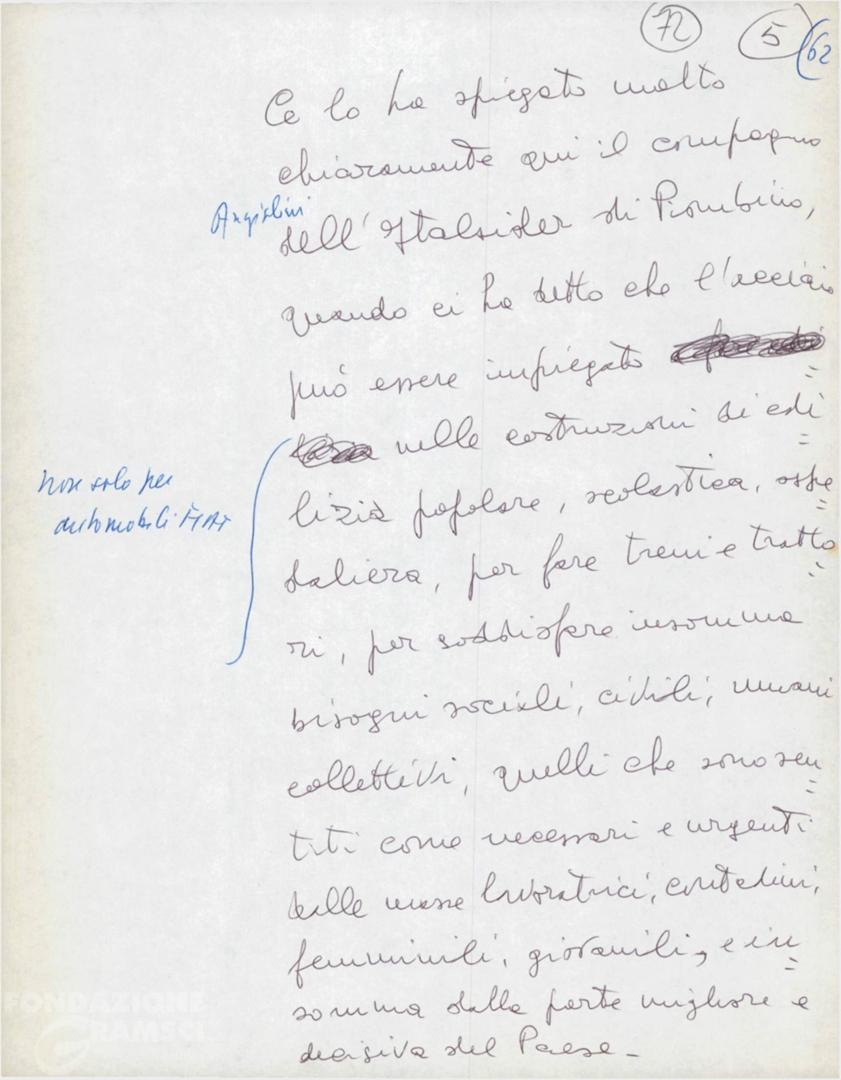 72 5 62
Ce lo ha spiegato molto
chiaramente qui il compagno
Angiolini
dell'Italsider di Piombino,
quando ci ha detto che l'acciaio
può essere impiegato
nelle costruzioni di edi
non solo per
automobili FIAT
lizia popolare, scolastica, ospe
daliera, per fare treni e tratto
ri, per soddisfare insomma
bisogni sociali, civili, umani
collettivi, quelli che sono sen
titi come necessari e urgenti
dalle masse lavoratrici, contadini,
femminili, giovanili, e in
somma dalla parte migliore e
decisiva del Paese -
FONDAZIONE
GRAMSCI